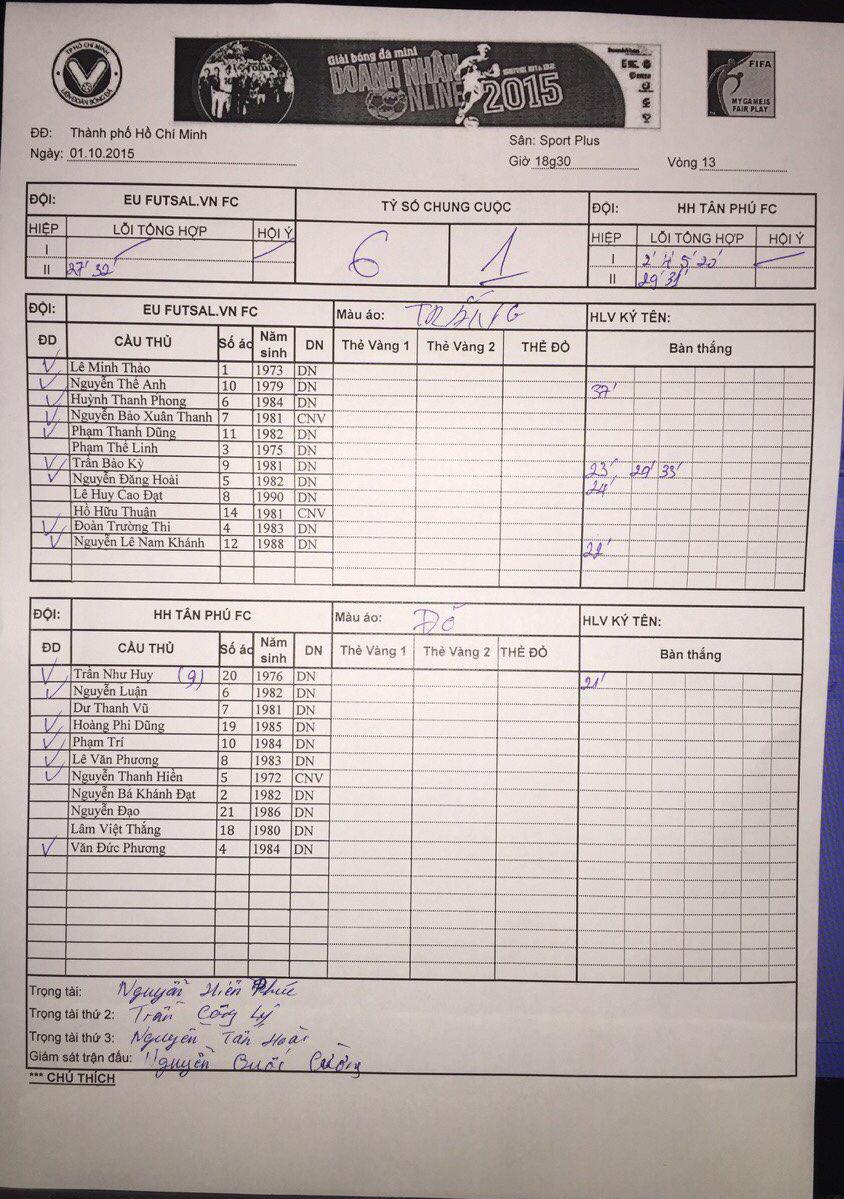 TP HỒ CHÍ MINH
LIÊN ĐOÀN BÓNG ĐÁ
Giải bóng đá mini
DOANH NHÂN
ONLINE 2015
FIFA
MY GAME IS
FAIR PLAY
ĐĐ: Thành phố Hồ Chí Minh
Ngày: 01.10.2015
Sân: Sport Plus
Giờ 18g30 Vòng 13
ĐỘI: EU FUTSAL.VN FC TỶ SỐ CHUNG CUỘC ĐỘI: HH TÂN PHÚ FC
HIỆP LỖI TỔNG HỢP HỘI Ý 6 1 HIỆP LỖI TỔNG HỢP HỘI Ý
I I 2' 4' 5' 20'
II 27' 32' II 29' 31'
ĐỘI: EU FUTSAL.VN FC Màu áo: TRẮNG HLV KÝ TÊN:
ĐD CẦU THỦ Số áo Năm sinh DN Thẻ Vàng 1 Thẻ Vàng 2 THẺ ĐỎ Bàn thắng
Lê Minh Thảo 1 1973 DN
Nguyễn Thế Anh 10 1979 DN 37'
Huỳnh Thanh Phong 6 1984 DN
Nguyễn Bảo Xuân Thanh 7 1981 CNV
Phạm Thanh Dũng 11 1982 DN
Phạm Thế Linh 3 1975 DN
Trần Bảo Kỳ 9 1981 DN 23' 29' 33'
Nguyễn Đăng Hoài 5 1982 DN 24'
Lê Huy Cao Đạt 8 1990 DN
Hồ Hữu Thuận 14 1981 CNV
Đoàn Trường Thi 4 1983 DN
Nguyễn Lê Nam Khánh 12 1988 DN 22'
ĐỘI: HH TÂN PHÚ FC Màu áo: ĐỎ HLV KÝ TÊN:
ĐD CẦU THỦ Số áo Năm sinh DN Thẻ Vàng 1 Thẻ Vàng 2 THẺ ĐỎ Bàn thắng
Trần Như Huy (9) 20 1976 DN 21'
Nguyễn Luận 6 1982 DN
Dư Thanh Vũ 7 1981 DN
Hoàng Phi Dũng 19 1985 DN
Phạm Trí 10 1984 DN
Lê Văn Phương 8 1983 DN
Nguyễn Thanh Hiền 5 1972 CNV
Nguyễn Bá Khánh Đạt 2 1982 DN
Nguyễn Đạo 21 1986 DN
Lâm Việt Thắng 18 1980 DN
Văn Đức Phương 4 1984 DN
Trọng tài: Nguyễn Hiền Phúc
Trọng tài thứ 2: Trần Công Lý
Trọng tài thứ 3: Nguyễn Tấn Hoài
Giám sát trận đấu: Nguyễn Quốc Cường
*** CHÚ THÍCH